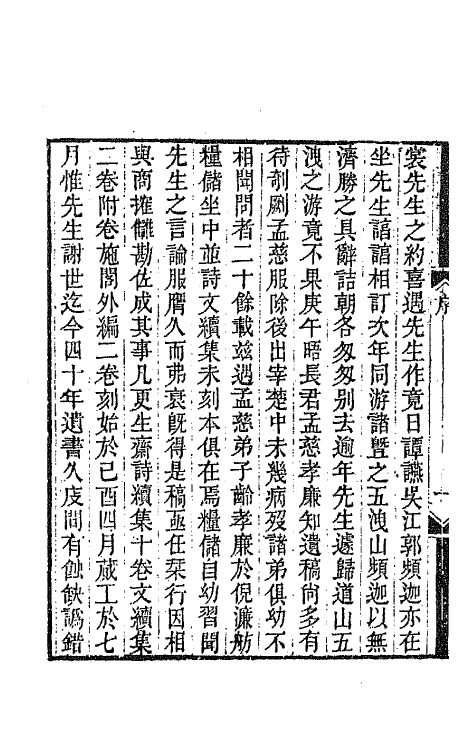 裳先生之約喜遇先生作竟日譚讌吳江郭頻迦亦在
坐先生諄諄相訂次年同游諸暨之五洩山頻迦以無
濟勝之具辭詰朝各匆匆別去逾年先生遽歸道山五
洩之游竟不果庚午晤長君孟慈孝廉知遺稿尙多有
待剞劂孟慈服除後出宰楚中未幾病歿諸弟俱幼不
相聞問者二十餘載茲遇孟慈弟子齡孝廉於倪濂舫
糧儲坐中並詩文續集未刻本俱在焉糧儲自幼習聞
先生之言論服膺久而弗衰旣得是稿亟任栞行因相
與商搉讎勘佐成其事凡更生齋詩續集十卷文續集
二卷附卷施閣外編二卷刻始於己酉四月蕆工於七
月惟先生謝世迄今四十年遺書久庋間有蝕缺譌錯
序
一